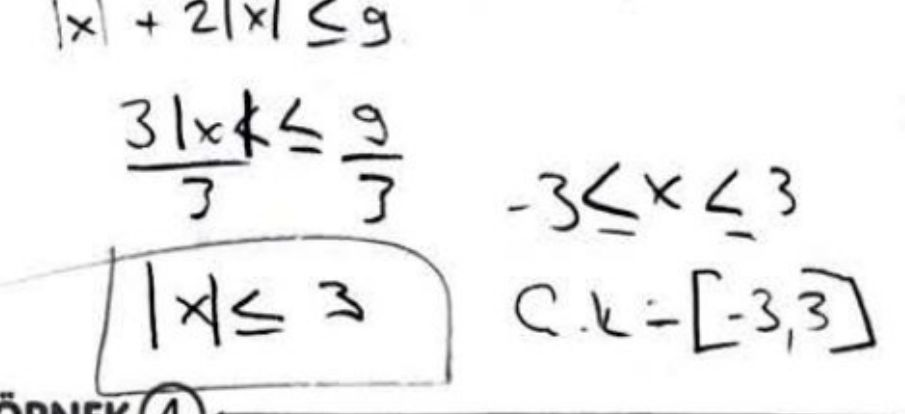 |x| + 2|x| ≤ 9
3|x| / 3 ≤ 9 / 3
|x| ≤ 3
-3 ≤ x ≤ 3
Ç.k = [-3,3]
ÖRNEK 4